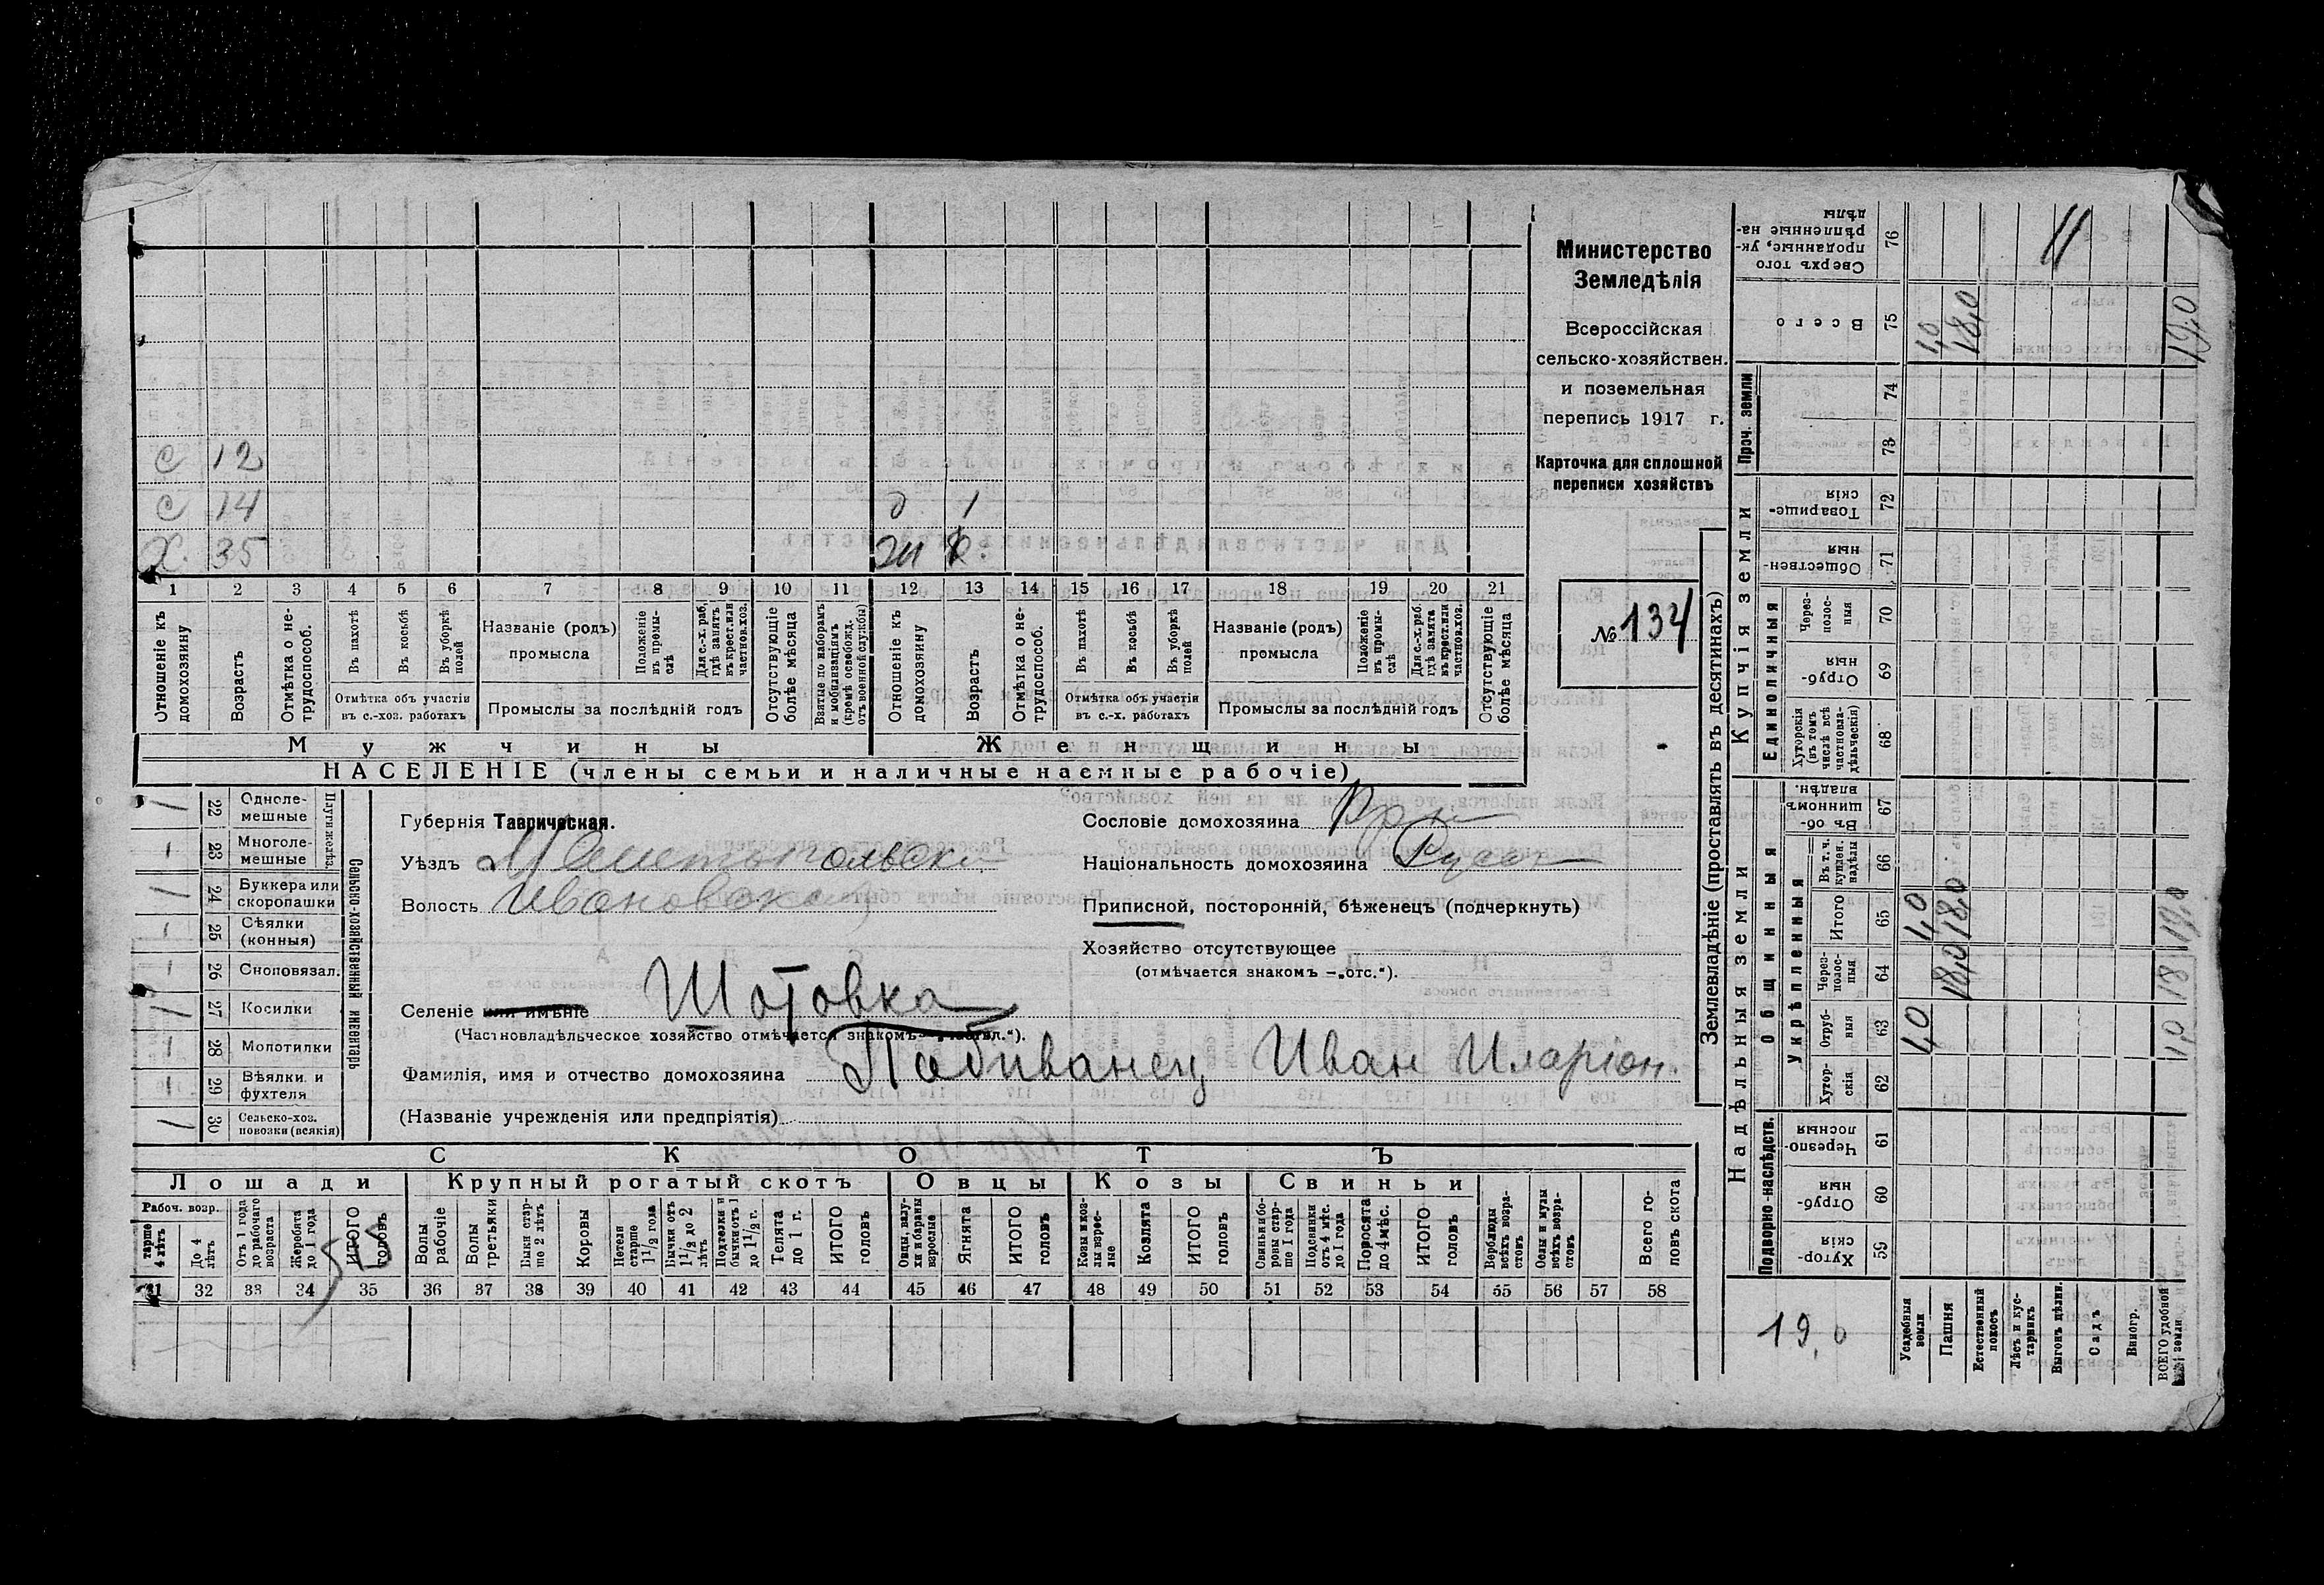 с 12
с 14
д 1
Х. 35
ж
1 2 3 4 5 6 7 8 9 10 11 12 13 14 15 16 17 18 19 20 21
Отношеніе къ домохозяину
Возрастъ
Отмѣтка о не-трудоспособ.
Въ пахотѣ
Въ косьбѣ
Въ уборкѣ полей
Отмѣтка объ участіи въ с.-хоз. работахъ
Названіе (родъ) промысла
Положеніе въ промы-слѣ
Для с.-х. раб. гдѣ занятъ въ крест. или частнов. хоз.
Промыслы за послѣдній годъ
Отсутствующіе болѣе мѣсяца
Взятые по наборамъ и мобилизаціямъ (кромѣ освобожд. отъ военной службы)
Отношеніе къ домохозяину
Возрастъ
Отмѣтка о не-трудоспособ.
Въ пахотѣ
Въ косьбѣ
Въ уборкѣ полей
Отмѣтка объ участіи въ с.-х. работахъ
Названіе (родъ) промысла
Положеніе въ промы-слѣ
Для с.-х. раб. гдѣ занята въ крест. или частнов. хоз.
Промыслы за послѣдній годъ
Отсутствующіе болѣе мѣсяца
Мужчины
Женщины
НАСЕЛЕНІЕ (члены семьи и наличные наемные рабочіе)
Министерство
Земледѣлія
Всероссійская
сельско-хозяйствен.
и поземельная
перепись 1917 г.
Карточка для сплошной
переписи хозяйствъ
№ 134
Сельско-хозяйственный инвентарь
Плуги желѣз.
22 Одноле-мешные
23 Многоле-мешные
24 Буккера или скоропашки
25 Сѣялки (конныя)
26 Сноповязал.
27 Косилки
28 Молотилки
29 Вѣялки и фухтеля
30 Сельско-хоз. повозки (всякія)
Губернія Таврическая.
Уѣздъ Мелитопольски
Волость Ивановска
Сословіе домохозяина Кр-н
Національность домохозяина Русск
Приписной, посторонній, бѣженецъ (подчеркнуть)
Хозяйство отсутствующее
(отмѣчается знакомъ —„отс.“).
Селеніе или имѣніе Шотовка
(Частновладѣльческое хозяйство отмѣчается знакомъ
Фамилія, имя и отчество домохозяина Падиванец Иван Иларіон.
(Названіе учрежденія или предпріятія)
СКОТЪ
Лошади Крупный рогатый скотъ Овцы Козы Свиньи
Рабоч. возр.
тарше 4 лѣтъ
До 4 лѣтъ
Отъ 1 года до рабочаго возраста
Жеребята до 1 года
ИТОГО головъ
Волы рабочіе
Волы третьяки
Быки стар-ше 2 лѣтъ
Коровы
Нетели старше 1 1/2 года
Бычки отъ 1 1/2 до 2 лѣтъ
Подтелки и бычки отъ 1 до 1 1/2 г.
Телята до 1 г.
ИТОГО головъ
Овцы, валу-хи и бараны взрослые
Ягнята
ИТОГО головъ
Козы и коз-лы взрос-лые
Козлята
ИТОГО головъ
Свиньи и бо-ровы стар-ше 1 года
Подсвинки отъ 4 мѣс. до 1 года
Поросята до 4 мѣс.
ИТОГО головъ
Верблюды всѣхъ возра-стовъ
Ослы и мулы всѣхъ возра-стовъ
Всего го-ловъ скота
31 32 33 34 35 36 37 38 39 40 41 42 43 44 45 46 47 48 49 50 51 52 53 54 55 56 57 58
Землевладѣніе (проставлять въ десятинахъ)
Надѣльныя земли
Купчія земли
Проч. земли
Подворно-наслѣдств.
Общинныя
Укрѣпленныя
Единоличныя
Сверхъ того проданные, ук-рѣпленные на-дѣлы 76
Всего 75 1,0 18,0 19,0
74
73
Товарище-скія 72
Обществен-ныя 71
Через-полос-ныя 70
Отруб-ныя 69
Хуторскія (въ томъ числѣ всѣ частновла-дѣльческія) 68
Въ об-щинномъ владѣн. 67
Въ т. ч. куплен. надѣлы 66
Итого 65 1,0 18,0 19,0
Через-полос-ныя 64 18,0 18
Отруб-ныя 63 1,0 1,0
Хутор-скія 62
Черезпо-лосныя 61
Отруб-ныя 60
Хутор-скія 59
19,0
Усадебныя земли
Пашня
Естественный покосъ
Лѣсъ и кус-тарникъ
Выгонъ цѣлин.
Садъ
Виногр.
ВСЕГО удобной земли